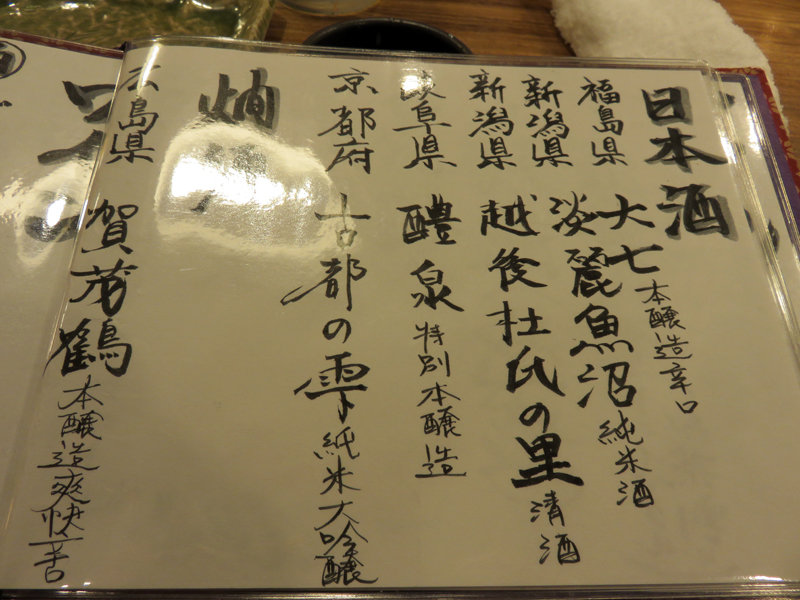 日本酒
福島県 大七 本醸造辛口
新潟県 淡麗魚沼 純米酒
新潟県 越後杜氏の里 清酒
岐阜県 醴泉 特別本醸造
京都府 古都の雫 純米大吟醸
燗
島県 賀茂鶴 本醸造爽快辛口